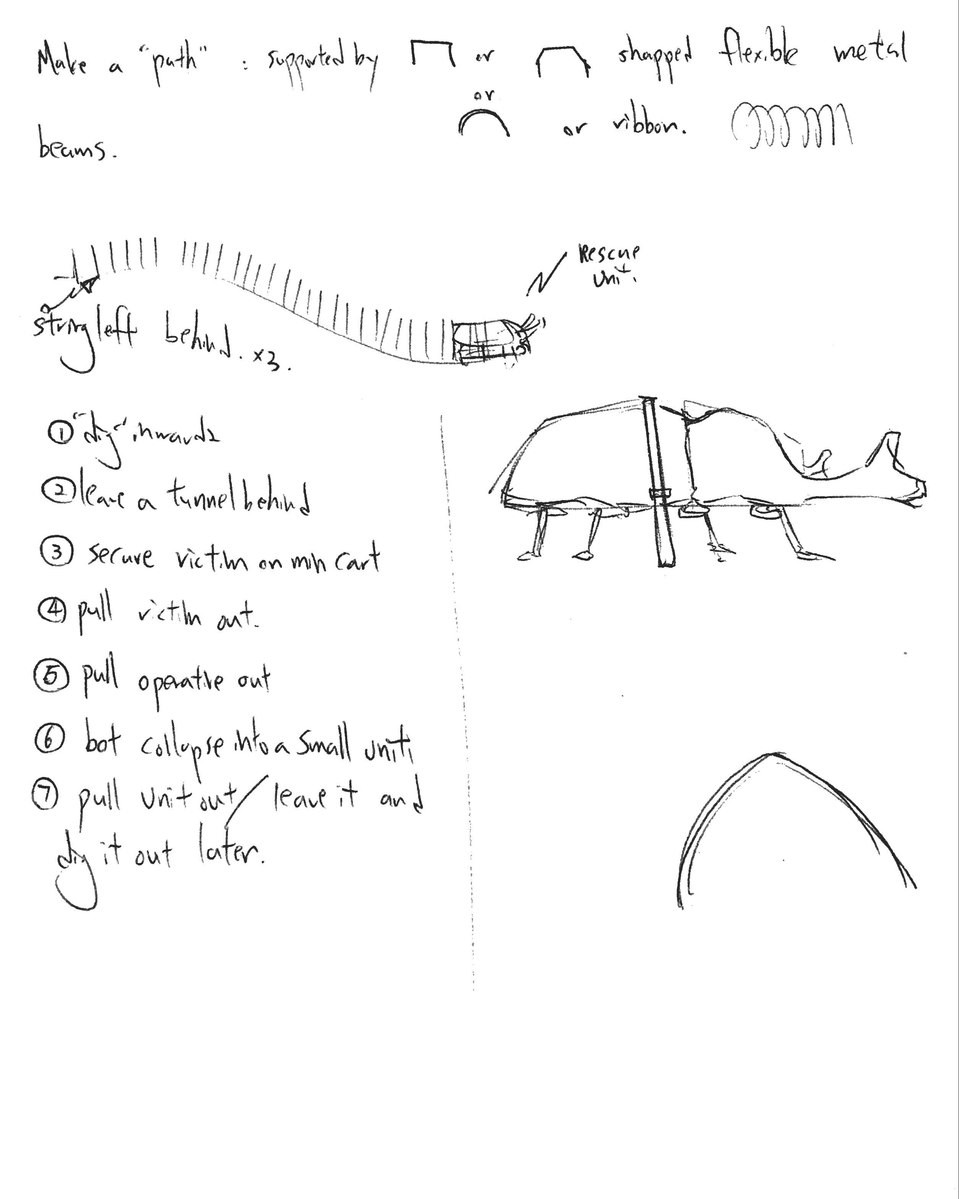 Make a "path" : supported by or shapped flexible metal
or
or ribbon.
beams.
Rescue
unit.
string left behind. x3.
① "dig" inwards
② leave a tunnel behind
③ secure victim on min cart
④ pull victim out.
⑤ pull operative out
⑥ bot collapse into a small unit
⑦ pull unit out / leave it and
dig it out later.